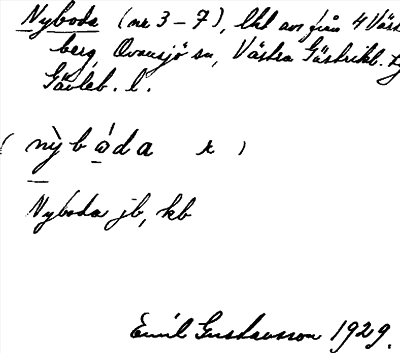 Nyboda (nr 3-7), lht avs från 4 Väst
berg, Ovansjö sn, Västra Gästrikl.
Gävleb. l.
( nỳb á̱da r )
Nyboda jb, kb
Emil Gustavsson 1929.